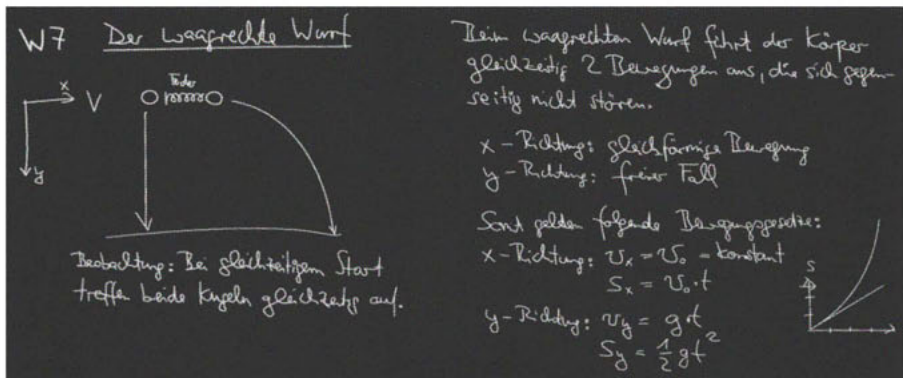 W7 Der waagrechte Wurf
x
V
Feder
y
Beobachtung: Bei gleichzeitigem Start
treffen beide Kugeln gleichzeitig auf.
Beim waagrechten Wurf führt der Körper
gleichzeitig 2 Bewegungen aus, die sich gegen-
seitig nicht stören.
x-Richtung: gleichförmige Bewegung
y-Richtung: freier Fall
Somit gelden folgende Bewegungsgesetze:
x-Richtung: v_x = v_0 = konstant
s_x = v_0 · t
y-Richtung: v_y = g · t
s_y = ½ g t²
s